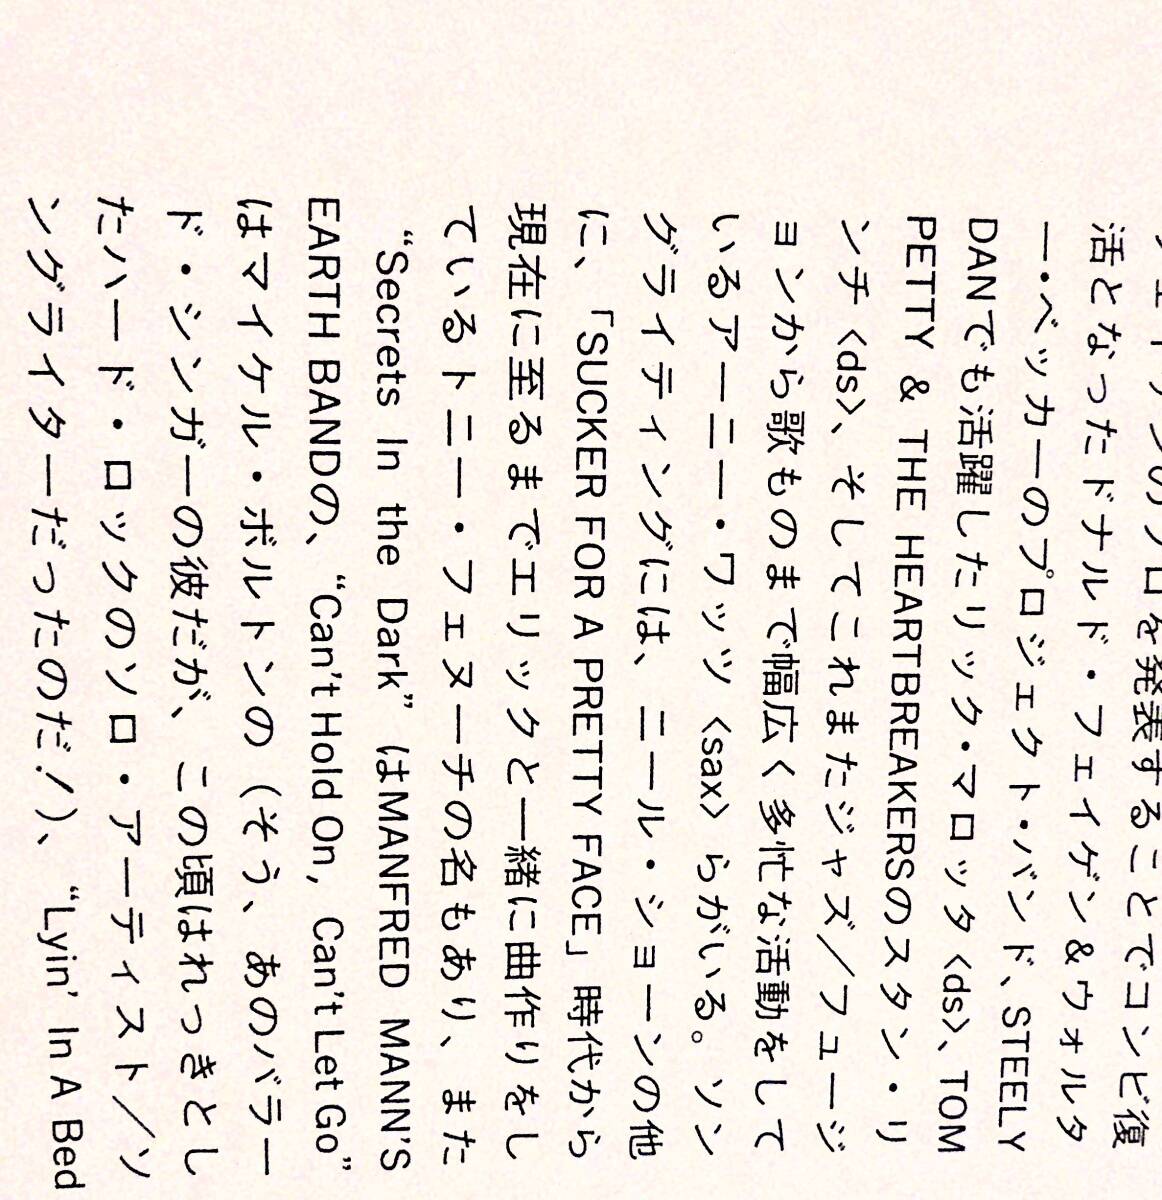 ンのソロを発表することでコンビ復
活となったドナルド・フェイゲン&ウォルタ
ー・ベッカーのプロジェクト・バンド、STEELY
DANでも活躍したリック・マロッタ〈ds〉、TOM
PETTY & THE HEARTBREAKERSのスタン・リ
ンチ〈ds〉、そしてこれまたジャズ/フュージ
ョンから歌ものまで幅広く多忙な活動をして
いるアーニー・ワッツ〈sax〉らがいる。ソン
グライティングには、ニール・ショーンの他
に、「SUCKER FOR A PRETTY FACE」時代から
現在に至るまでエリックと一緒に曲作りをし
ているトニー・フェヌーチの名もあり、また
“Secrets In the Dark” はMANFRED MANN'S
EARTH BANDの、“Can't Hold On, Can't Let Go”
はマイケル・ボルトンの(そう、あのバラー
ド・シンガーの彼だが、この頃はれっきとし
たハード・ロックのソロ・アーティスト/ソ
ングライターだったのだ!)、“Lyin' In A Bed